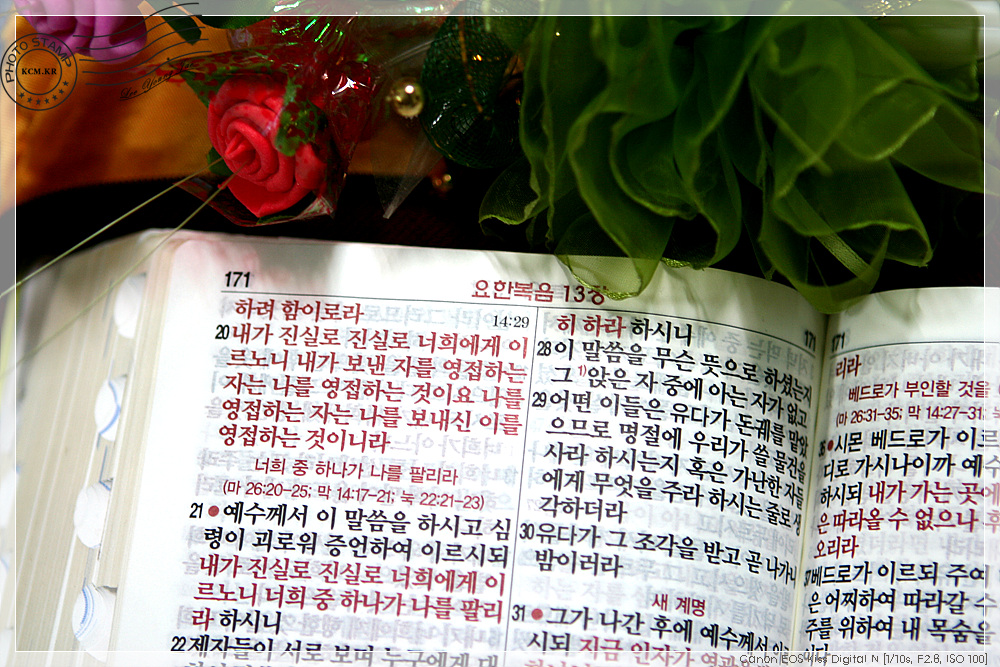 PHOTO STAMP
KCM.KR
171
요한복음 13장
171
171
하려 함이로라
14:29
20 내가 진실로 진실로 너희에게 이
르노니 내가 보낸 자를 영접하는
자는 나를 영접하는 것이요 나를
영접하는 자는 나를 보내신 이를
영접하는 것이니라
너희 중 하나가 나를 팔리라
(마 26:20-25; 막 14:17-21; 눅 22:21-23)
21 ●예수께서 이 말씀을 하시고 심
령이 괴로워 증언하여 이르시되
내가 진실로 진실로 너희에게 이
르노니 너희 중 하나가 나를 팔리
라 하시니
22 제자들이 서로 보며 누구에게 대
히 하라 하시니
28 이 말씀을 무슨 뜻으로 하셨는지
그 1)앉은 자 중에 아는 자가 없고
29 어떤 이들은 유다가 돈궤를 맡았
으므로 명절에 우리가 쓸 물건을
사라 하시는지 혹은 가난한 자들
에게 무엇을 주라 하시는 줄로 생
각하더라
30 유다가 그 조각을 받고 곧 나가니
밤이러라
새 계명
31 ●그가 나간 후에 예수께서 이
시되 지금 인자가 영광
리라
베드로가 부인할 것을
(마 26:31-35; 막 14:27-31;
36 ●시몬 베드로가 이르
디로 가시나이까 예수
하시되 내가 가는 곳에
은 따라올 수 없으나 후
오리라
37 베드로가 이르되 주여
은 어찌하여 따라갈 수
주를 위하여 내 목숨을
Canon EOS Kiss Digital N [1/10s, F2.8, ISO 100]